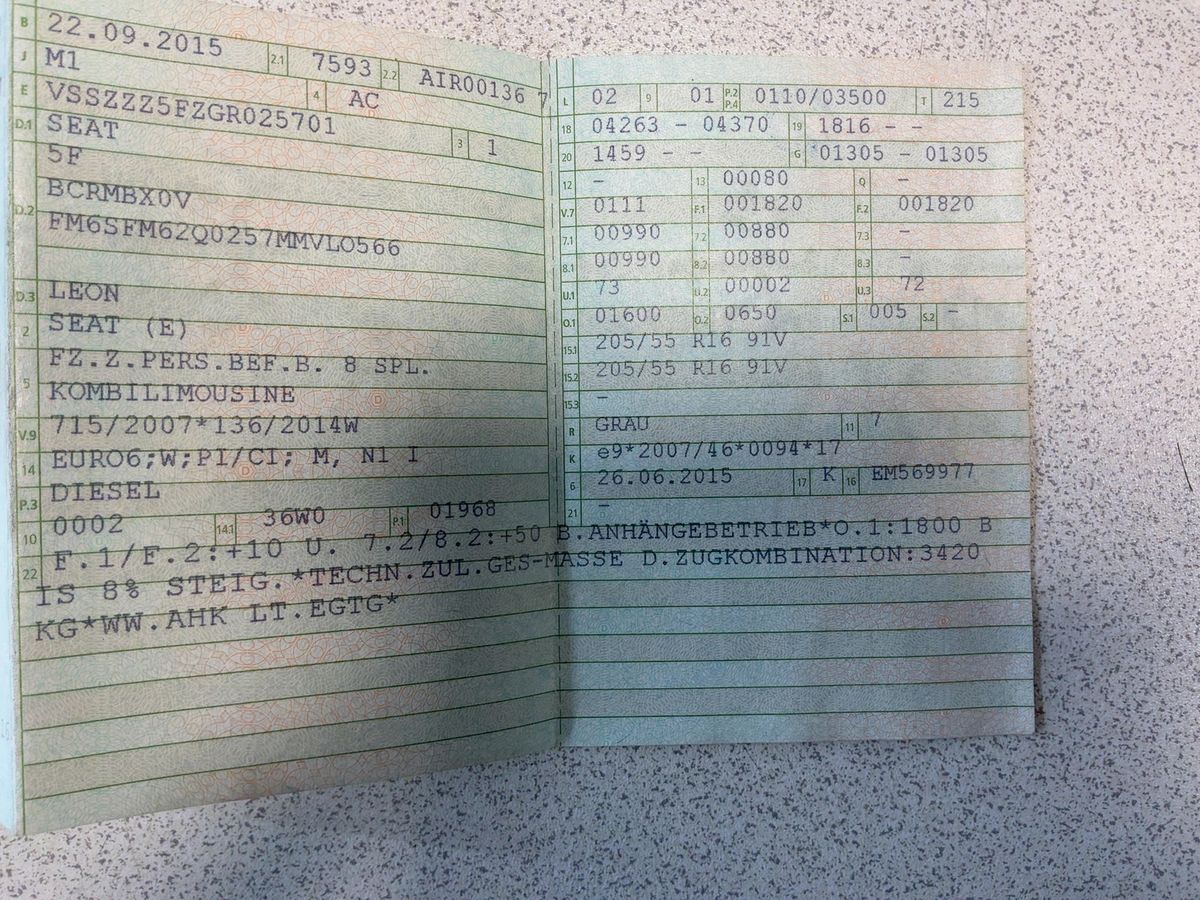 B 22.09.2015 2.1 7593 2.2 AIR00136 7
J M1 4 AC
E VSSZZZ5FZGR025701 3 1
D.1 SEAT
5F
D.2 BCRMBX0V
FM6SFM62Q0257MMVLO566
D.3 LEON
2 SEAT (E)
5 FZ.Z.PERS.BEF.B. 8 SPL.
KOMBILIMOUSINE
V.9 715/2007*136/2014W
14 EURO6;W;PI/CI; M, N1 I
P.3 DIESEL
10 0002 14.1 36W0 P.1 01968
L 02 9 01 P.2 P.4 0110/03500 T 215
18 04263 - 04370 19 1816 - -
20 1459 - - G 01305 - 01305
12 - 13 00080 Q -
V.7 0111 F.1 001820 F.2 001820
7.1 00990 7.2 00880 7.3 -
8.1 00990 8.2 00880 8.3 -
U.1 73 U.2 00002 U.3 72
O.1 01600 O.2 0650 S.1 005 S.2 -
15.1 205/55 R16 91V
15.2 205/55 R16 91V
15.3 -
R GRAU 11 7
K e9*2007/46*0094*17
6 26.06.2015 17 K 16 EM569977
21 -
22 F.1/F.2:+10 U. 7.2/8.2:+50 B.ANHÄNGEBETRIEB*O.1:1800 B
IS 8% STEIG.*TECHN.ZUL.GES-MASSE D.ZUGKOMBINATION:3420
KG*WW.AHK LT.EGTG*